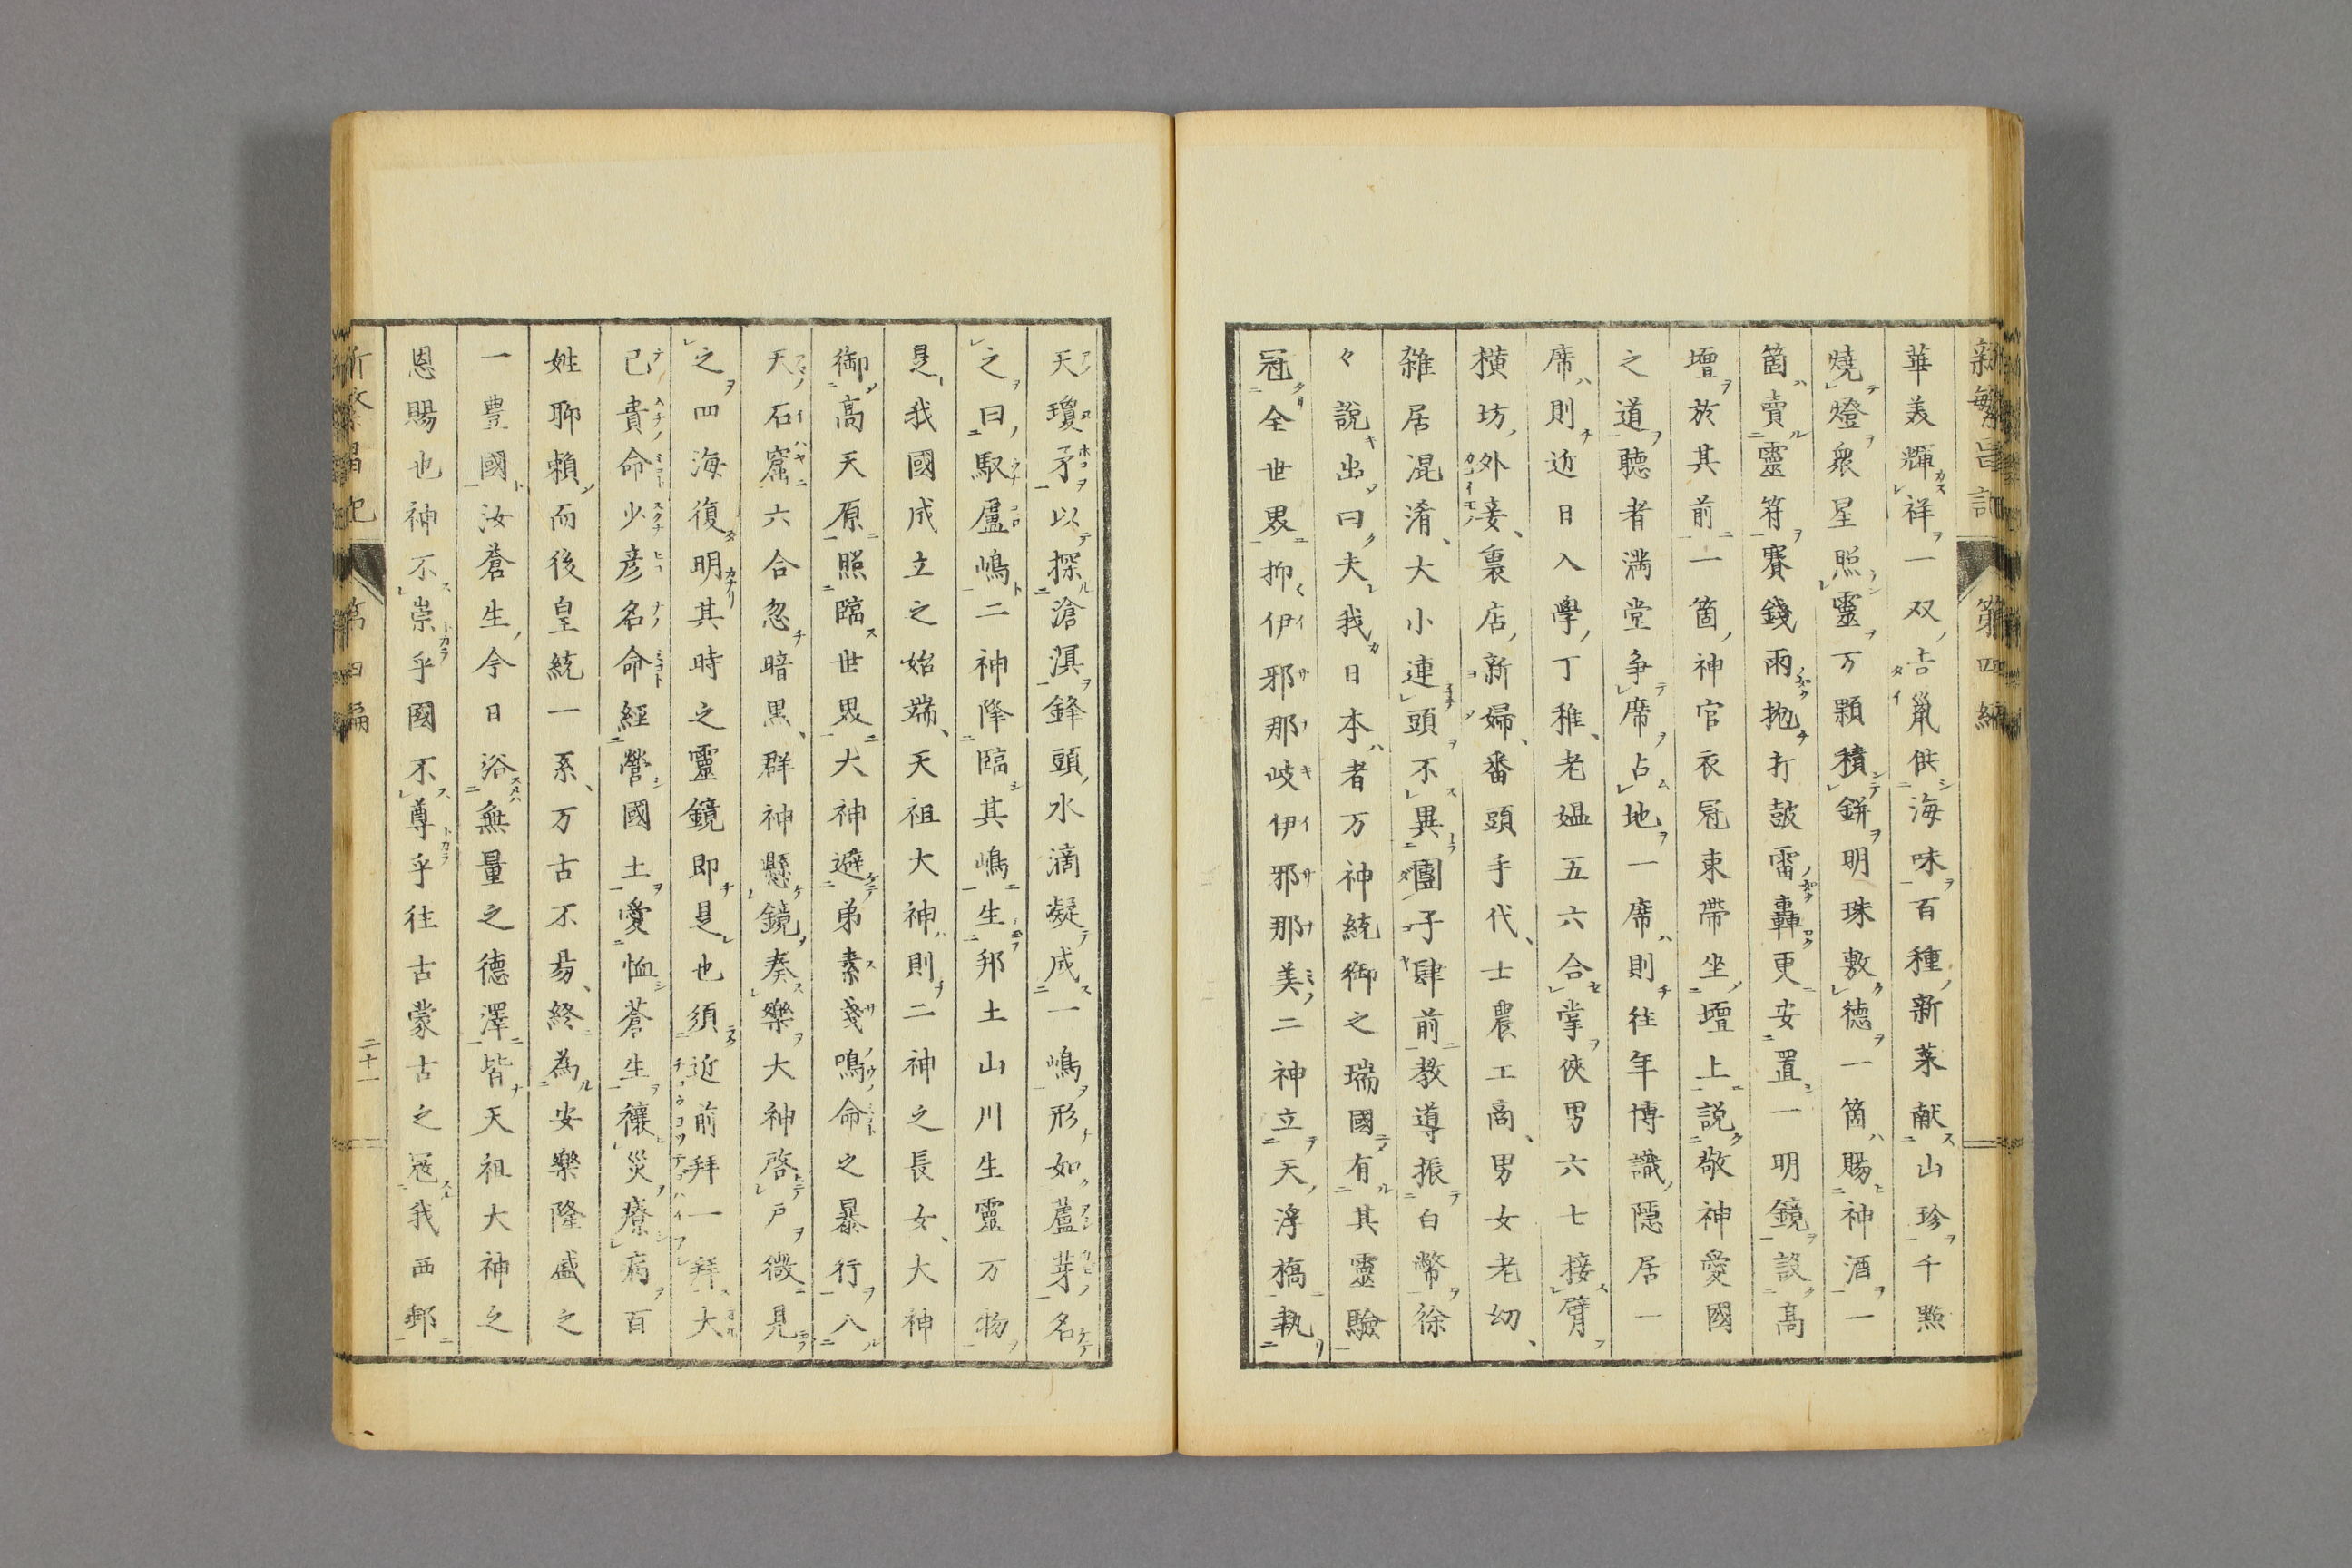 新繁昌記 第四編
華美輝祥一双吉鼡供海味百種新菜献山珍千㸃
燒燈衆星照靈万顆積餅明珠敷德一箇賜神酒一
箇賣靈符賽錢雨抛打皷雷轟更安置一明鏡設高
壇於其前一箇神官衣冠束帶坐壇上説敬神愛國
之道聽者満堂争席占地一席則往年博識隠居一
席則近日入學丁稚老媼五六合掌俠男六七接臂
横坊外妾裏店新婦番頭手代士農工商男女老幼
雑居混淆大小連頭不異團子肆前教導振白幣徐
々說出曰夫我日本者万神統御之瑞國有其靈驗
冠全世界抑伊邪那岐伊邪那美二神立天浮橋執
天瓊矛以探滄溟鋒頭水滴凝成一嶋形如蘆芽名
之曰馭盧嶋二神降臨其嶋生邦土山川生靈万物
是我國成立之始端天祖大神則二神之長女大神
御高天原照臨世界大神避弟素戔鳴命之暴行入
天石窟六合忽暗黒群神懸鏡奏樂大神啓戸微見
之四海復明其時之靈鏡即是也須近前拜一拜大
已貴命少彦名命經營國土愛恤蒼生禳災療病百
姓聊賴而後皇統一系万古不易終為安樂隆盛之
一豊國汝蒼生今日浴無量之德澤皆天祖大神之
恩賜也神不崇乎國不尊乎往古蒙古之冦我西鄙
新繁昌記 第四編 二十一